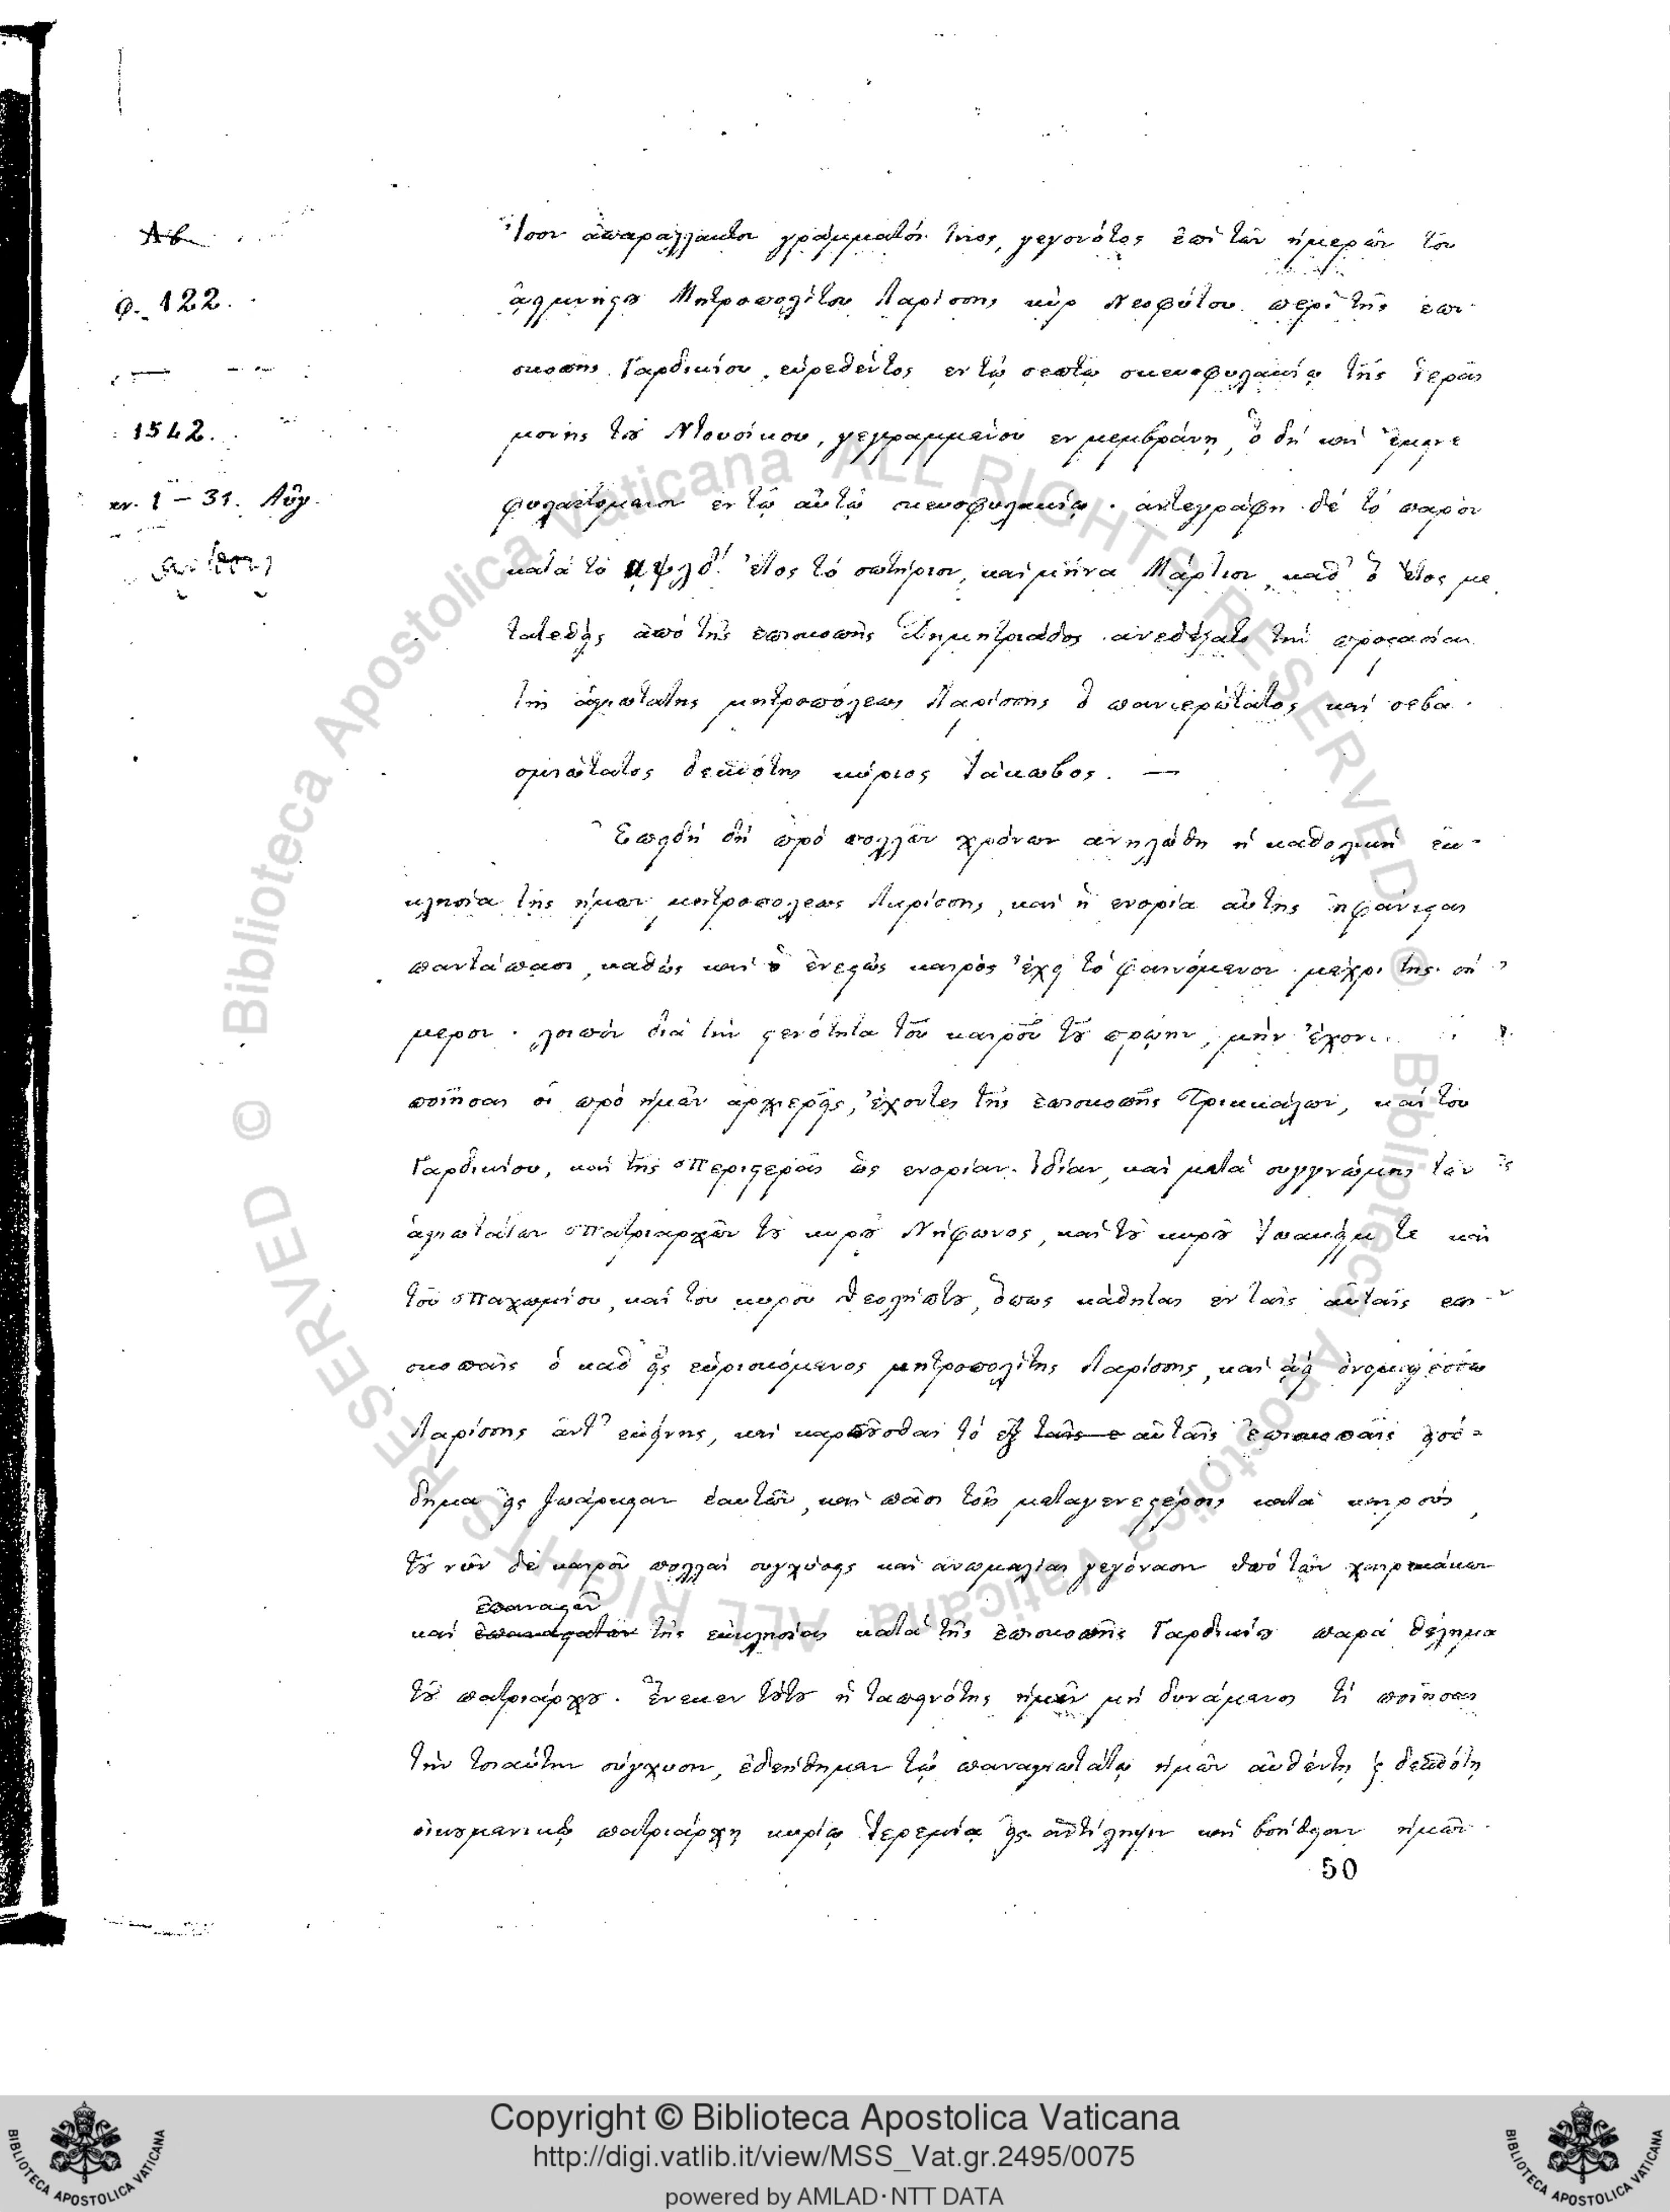 Αβ
φ. 122.
1542.
κν. 1 – 31. Αὔγ.
Ἴσον ἀπαράλλακτον γράμματός τινος, γεγονότος ἐπὶ τῶν ἡμερῶν τοῦ
ἀειμνήςου Μητροπολίτου Λαρίσσης κύρ Νεοφύτου. περὶ τῆς ἐπι-
σκοπῆς Γαρδικίου, εὑρεθέντος ἐν τῷ σεπτῷ σκευοφυλακίῳ τῆς ἱερᾶς
μονῆς τοῦ Ντουσίκου, γεγραμμένου ἐν μεμβράνῃ, ὃ δὴ καὶ
φυλαττόμενον ἐν τῷ αὐτῷ σκευοφυλακίῳ. ἀντεγράφη δέ τὸ παρὸν
κατὰ τὸ αψλδ! ἔτος τὸ σωτήριον, καὶ μῆνα Μάρτιον, καθ' ὃ ἔτος με
τατεθεὶς ἀπό τῆς ἐπισκοπῆς Δημητριάδος ἀνεδέξατο τὴν προςασίαν
τῆς ἁγιωτάτης μητροπόλεως Λαρίσσης ὁ πανιερώτατος καὶ σεβα-
σμιώτατος δεσπότης κύριος Ἰάκωβος. —
Ἐπειδὴ δὴ πρό πολλῶν χρόνων ἀνηλώθη ἡ καθολικὴ ἐκ-
κλησία τῆς ἡμῶν μητροπόλεως Λαρίσσης, καὶ ἡ ἐνορία αὐτῆς ἠφάνιςαι
παντάπασι, καθὼς καὶ ὁ ἐνεςὼς καιρὸς ἔχει τὸ φαινόμενον μέχρι τῆς σή-
μερον. λοιπὸν διά τὴν ςενότητα τοῦ καιροῦ τοῦ πρώην, μὴν ἔχον
ποιῆσαι οἱ πρὸ ἡμῶν ἀρχιερεῖς, ἔχοντες τῆς ἐπισκοπῆς Τρικκάλων, καὶ τοῦ
Γαρδικίου, καὶ τῆς Περιςερᾶς ὡς ἐνορίαν ἰδίαν, καὶ μετὰ συγγνώμης τῶν
ἁγιωτάτων Πατριαρχῶν τοῦ κυροῦ Νήφωνος, καὶ τοῦ κυροῦ Ἰωακεὶμ τε καὶ
τοῦ Παχωμίου, καὶ τοῦ κυροῦ Θεολήπτου, ὅπως κάθηται ἐν ταῖς αὐταῖς ἐπι-
σκοπαῖς ὁ καθ' εἷς εὑρισκόμενος μητροπολίτης Λαρίσσης, καὶ
Λαρίσσης ἀντ' ἐκείνης, καὶ καρποῦσθαι τὸ ἐν ταῖς ε αὐταῖς ἐπισκοπαῖς εἰσό-
δημα εἰς ζωάρκειαν ἑαυτῶν, καὶ πᾶσι τοῖς μεταγενεςέροις κατὰ καιροὺς,
τοῦ νῦν δὲ καιροῦ πολλαὶ συγχύσεις καὶ ἀνωμαλίαι γεγόνασιν ὑπὸ τῶν χαιρεκάκων
ἐπαναςῶν
καὶ ἐπαναςατῶν τῆς ἐκκλησίας κατὰ τῆς ἐπισκοπῆς Γαρδικίου παρὰ θέλημα
τοῦ πατριάρχου. Ἕνεκεν τούτου ἡ ταπεινότης ἡμῶν μὴ δυνάμενοι τί ποιῆσαι
τὴν τοιαύτην σύγχυσιν, ἐδεήθημεν τῷ παναγιωτάτῳ ἡμῶν αὐθέντῃ ϗ δεσπότῃ
οἰκουμενικῷ πατριάρχῃ κυρίῳ Ἱερεμίᾳ εἰς ἀντίληψιν καὶ βοήθειαν ἡμῶν.
50
Copyright © Biblioteca Apostolica Vaticana
http://digi.vatlib.it/view/MSS_Vat.gr.2495/0075
powered by AMLAD·NTT DATA